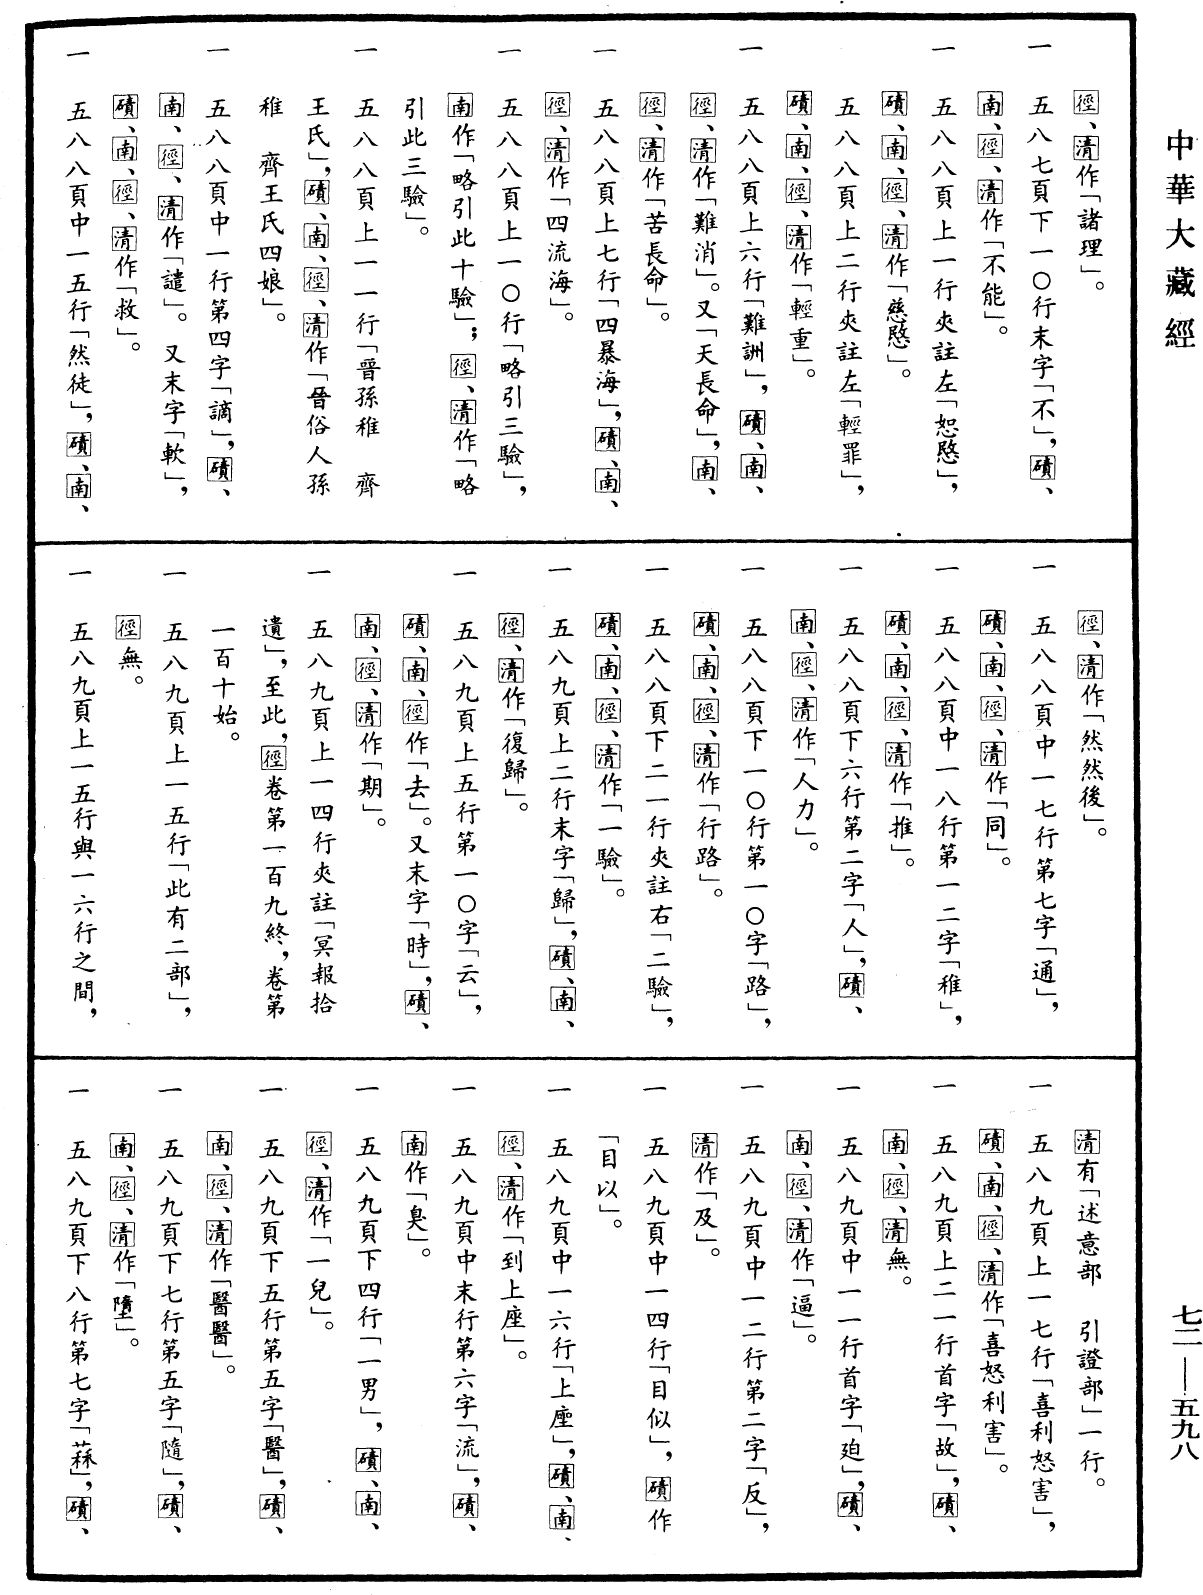 中華大藏經
徑、清作「諸理」。
一　五八七頁下一〇行末字「不」，磧、
南、徑、清作「不能」。
一　五八八頁上一行夾註左「恕愍」，
磧、南、徑、清作「慈愍」。
一　五八八頁上二行夾註左「輕罪」，
磧、南、徑、清作「輕重」。
一　五八八頁上六行「難詶」，磧、南、
徑、清作「難消」。又「天長命」，南、
徑、清作「苦長命」。
一　五八八頁上七行「四暴海」，磧、南、
徑、清作「四流海」。
一　五八八頁上一〇行「略引三驗」，
南作「略引此十驗」；徑、清作「略
引此三驗」。
一　五八八頁上一一行「晉孫稚　齊
王氏」，磧、南、徑、清作「晉俗人孫
稚　齊王氏四娘」。
一　五八八頁中一行第四字「謫」，磧、
南、徑、清作「譴」。又末字「軟」，
磧、南、徑、清作「救」。
一　五八八頁中一五行「然徒」，磧、南、
徑、清作「然然後」。
一　五八八頁中一七行第七字「通」，
磧、南、徑、清作「同」。
一　五八八頁中一八行第一二字「稚」，
磧、南、徑、清作「推」。
一　五八八頁下六行第二字「人」，磧、
南、徑、清作「人力」。
一　五八八頁下一〇行第一〇字「路」，
磧、南、徑、清作「行路」。
一　五八八頁下二一行夾註右「二驗」，
磧、南、徑、清作「一驗」。
一　五八九頁上二行末字「歸」，磧、南、
徑、清作「復歸」。
一　五八九頁上五行第一〇字「云」，
磧、南、徑作「去」。又末字「時」，磧、
南、徑、清作「期」。
一　五八九頁上一四行夾註「冥報拾
遺」，至此，徑卷第一百九終，卷第
一百十始。
一　五八九頁上一五行「此有二部」，
徑無。
一　五八九頁上一五行與一六行之間，
清有「述意部　引證部」一行。
一　五八九頁上一七行「喜利怒害」，
磧、南、徑、清作「喜怒利害」。
一　五八九頁上二一行首字「故」，磧、
南、徑、清無。
一　五八九頁中一一行首字「廹」，磧、
南、徑、清作「逼」。
一　五八九頁中一二行第二字「反」，
清作「及」。
一　五八九頁中一四行「目似」，磧作
「目以」。
一　五八九頁中一六行「上座」，磧、南、
徑、清作「到上座」。
一　五八九頁中末行第六字「流」，磧、
南作「臭」。
一　五八九頁下四行「一男」，磧、南、
徑、清作「一兒」。
一　五八九頁下五行第五字「醫」，磧、
南、徑、清作「醫醫」。
一　五八九頁下七行第五字「隨」，磧、
南、徑、清作「墮」。
一　五八九頁下八行第七字「蔴」，磧、
七二—五九八